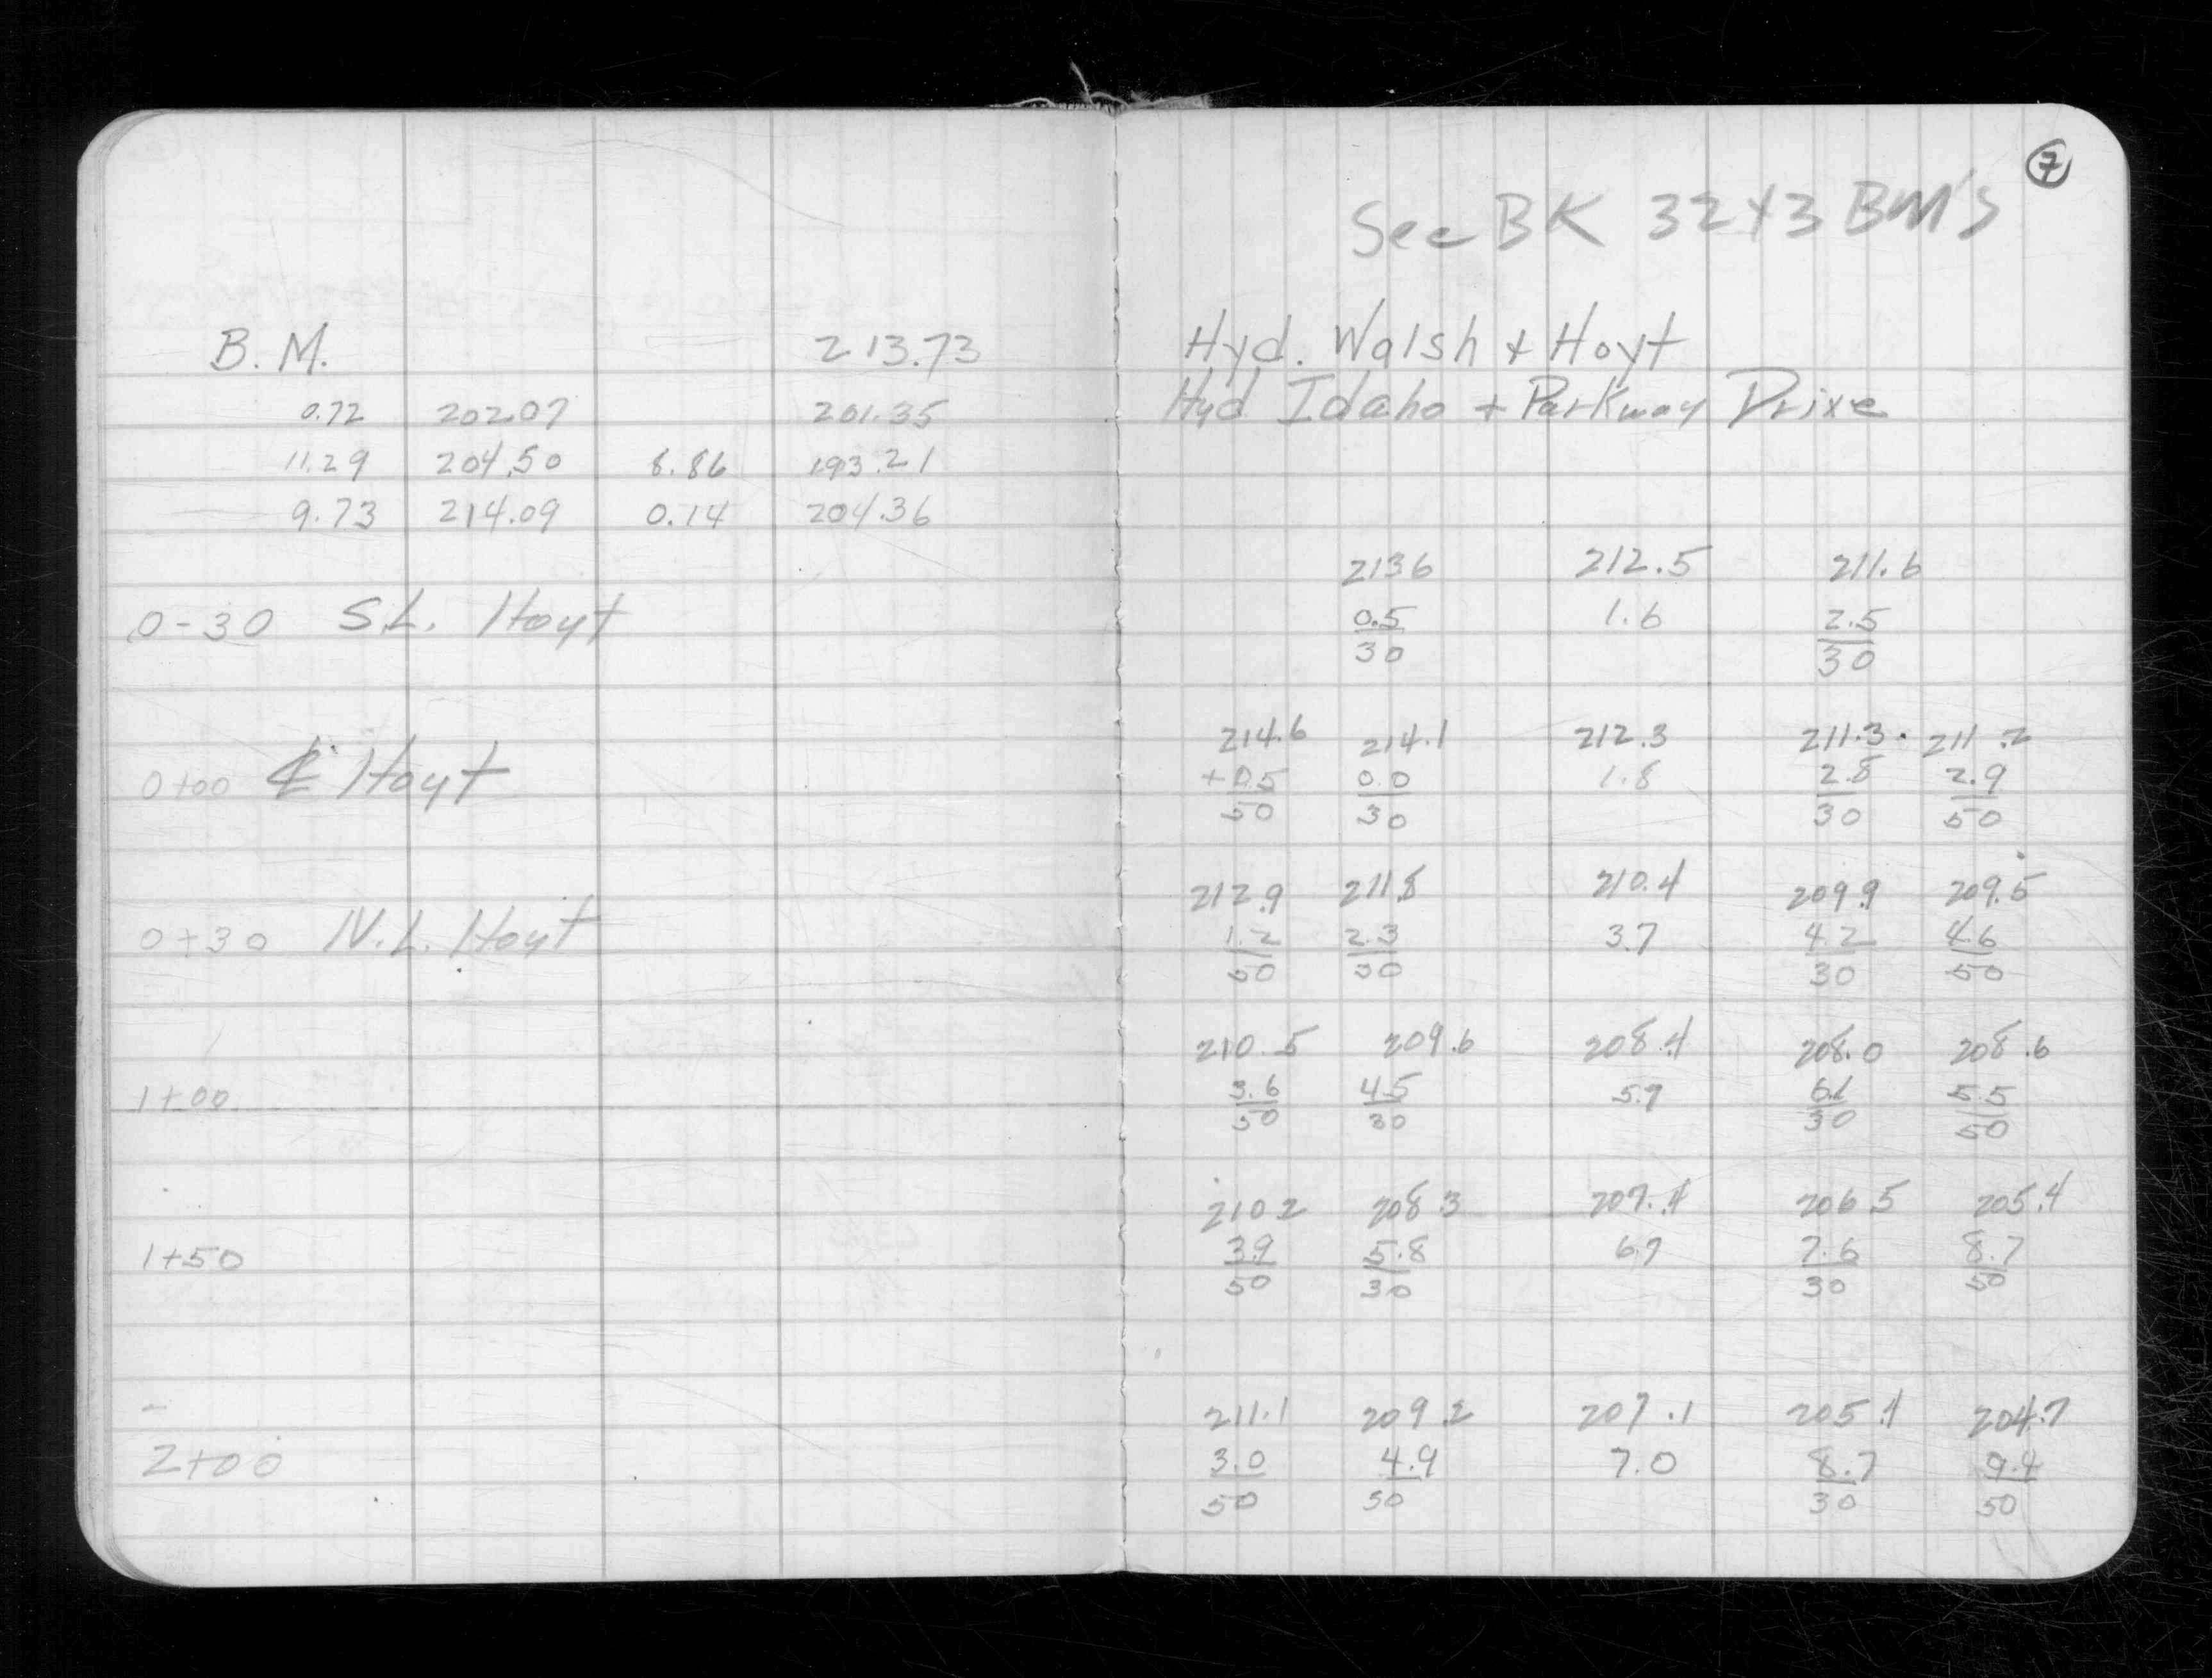 7
See BK 32 43 BM's
B. M. 213.73 Hyd. Walsh + Hoyt
0.72 202.07 201.35 Hyd Idaho + Parkway Drive
11.29 204.50 8.86 193.21
9.73 214.09 0.14 204.36
213.6 212.5 211.6
0-30 S.L. Hoyt 0.5 1.6 2.5
30 30
214.6 214.1 212.3 211.3 211.2
0+00 ℄ Hoyt +0.5 0.0 1.8 2.8 2.9
50 30 30 50
212.9 211.8 210.4 209.9 209.5
0+30 N.L. Hoyt 1.2 2.3 3.7 4.2 4.6
50 30 30 50
210.5 209.6 208.4 208.0 208.6
1+00 3.6 4.5 5.7 6.1 5.5
50 30 30 50
210.2 208.3 207.4 206.5 205.4
1+50 3.9 5.8 6.7 7.6 8.7
50 30 30 50
211.1 209.2 207.1 205.4 204.7
2+00 3.0 4.9 7.0 8.7 9.4
50 30 30 50